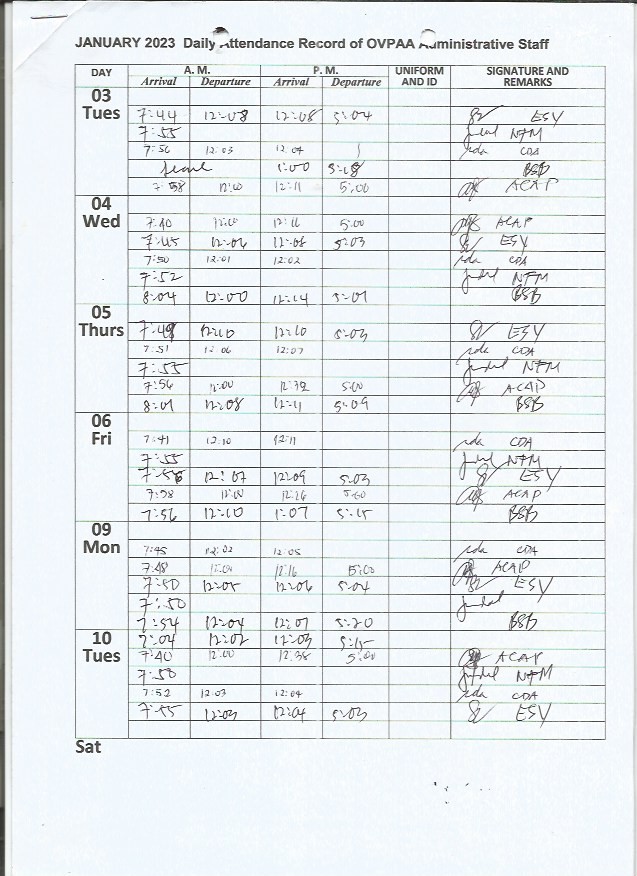 JANUARY 2023 Daily Attendance Record of OVPAA Administrative Staff
DAY A. M. P. M. UNIFORM AND ID SIGNATURE AND REMARKS
Arrival Departure Arrival Departure
03 Tues
7:44 12:08 12:08 5:04 ESY
7:55 NFM
7:56 12:03 12:04 CDA
1:00 5:18 BSB
7:58 12:10 12:11 5:00 ACAP
04 Wed
7:40 12:10 12:11 5:00 ACAP
7:45 12:06 12:08 5:03 ESY
7:50 12:01 12:02 CDA
7:52 NFM
8:04 12:00 12:14 5:01 BSB
05 Thurs
7:48 12:10 12:10 5:03 ESY
7:51 12:06 12:07 CDA
7:55 NFM
7:56 12:00 12:32 5:00 ACAP
8:01 12:08 12:11 5:09 BSB
06 Fri
7:41 12:10 12:11 CDA
7:55 NFM
7:56 12:07 12:09 5:03 ESY
7:58 12:00 12:26 5:00 ACAP
7:56 12:10 1:07 5:15 BSB
09 Mon
7:45 12:02 12:05 CDA
7:48 12:04 12:16 5:00 ACAP
7:50 12:05 12:06 5:04 ESY
7:50
7:54 12:04 12:07 5:20 BSB
10 Tues
7:04 12:02 12:03 5:15
7:40 12:00 12:38 5:00 ACAP
7:50 NFM
7:52 12:03 12:04 CDA
7:55 12:03 12:04 5:03 ESY
Sat